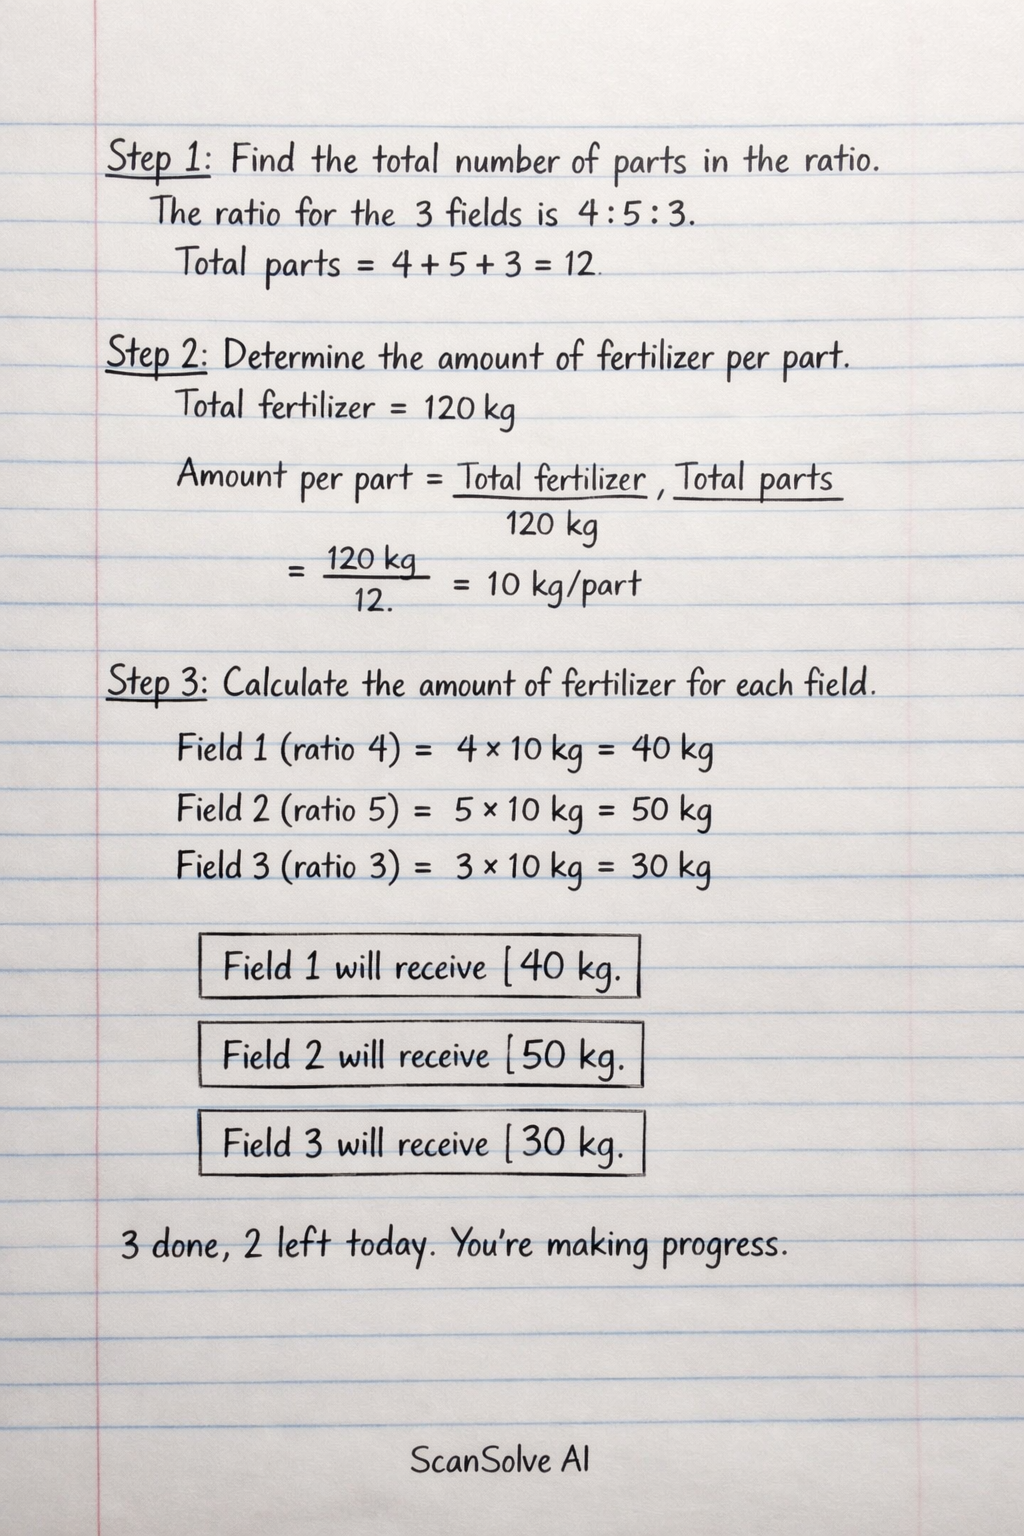 Step 1: Find the total number of parts in the ratio.
The ratio for the 3 fields is 4 : 5 : 3.
Total parts = 4 + 5 + 3 = 12.
Step 2: Determine the amount of fertilizer per part.
Total fertilizer = 120 kg
Amount per part = Total fertilizer , Total parts
120 kg
= 120 kg / 12. = 10 kg/part
Step 3: Calculate the amount of fertilizer for each field.
Field 1 (ratio 4) = 4 × 10 kg = 40 kg
Field 2 (ratio 5) = 5 × 10 kg = 50 kg
Field 3 (ratio 3) = 3 × 10 kg = 30 kg
Field 1 will receive [ 40 kg.
Field 2 will receive [ 50 kg.
Field 3 will receive [ 30 kg.
3 done, 2 left today. You're making progress.
ScanSolve AI